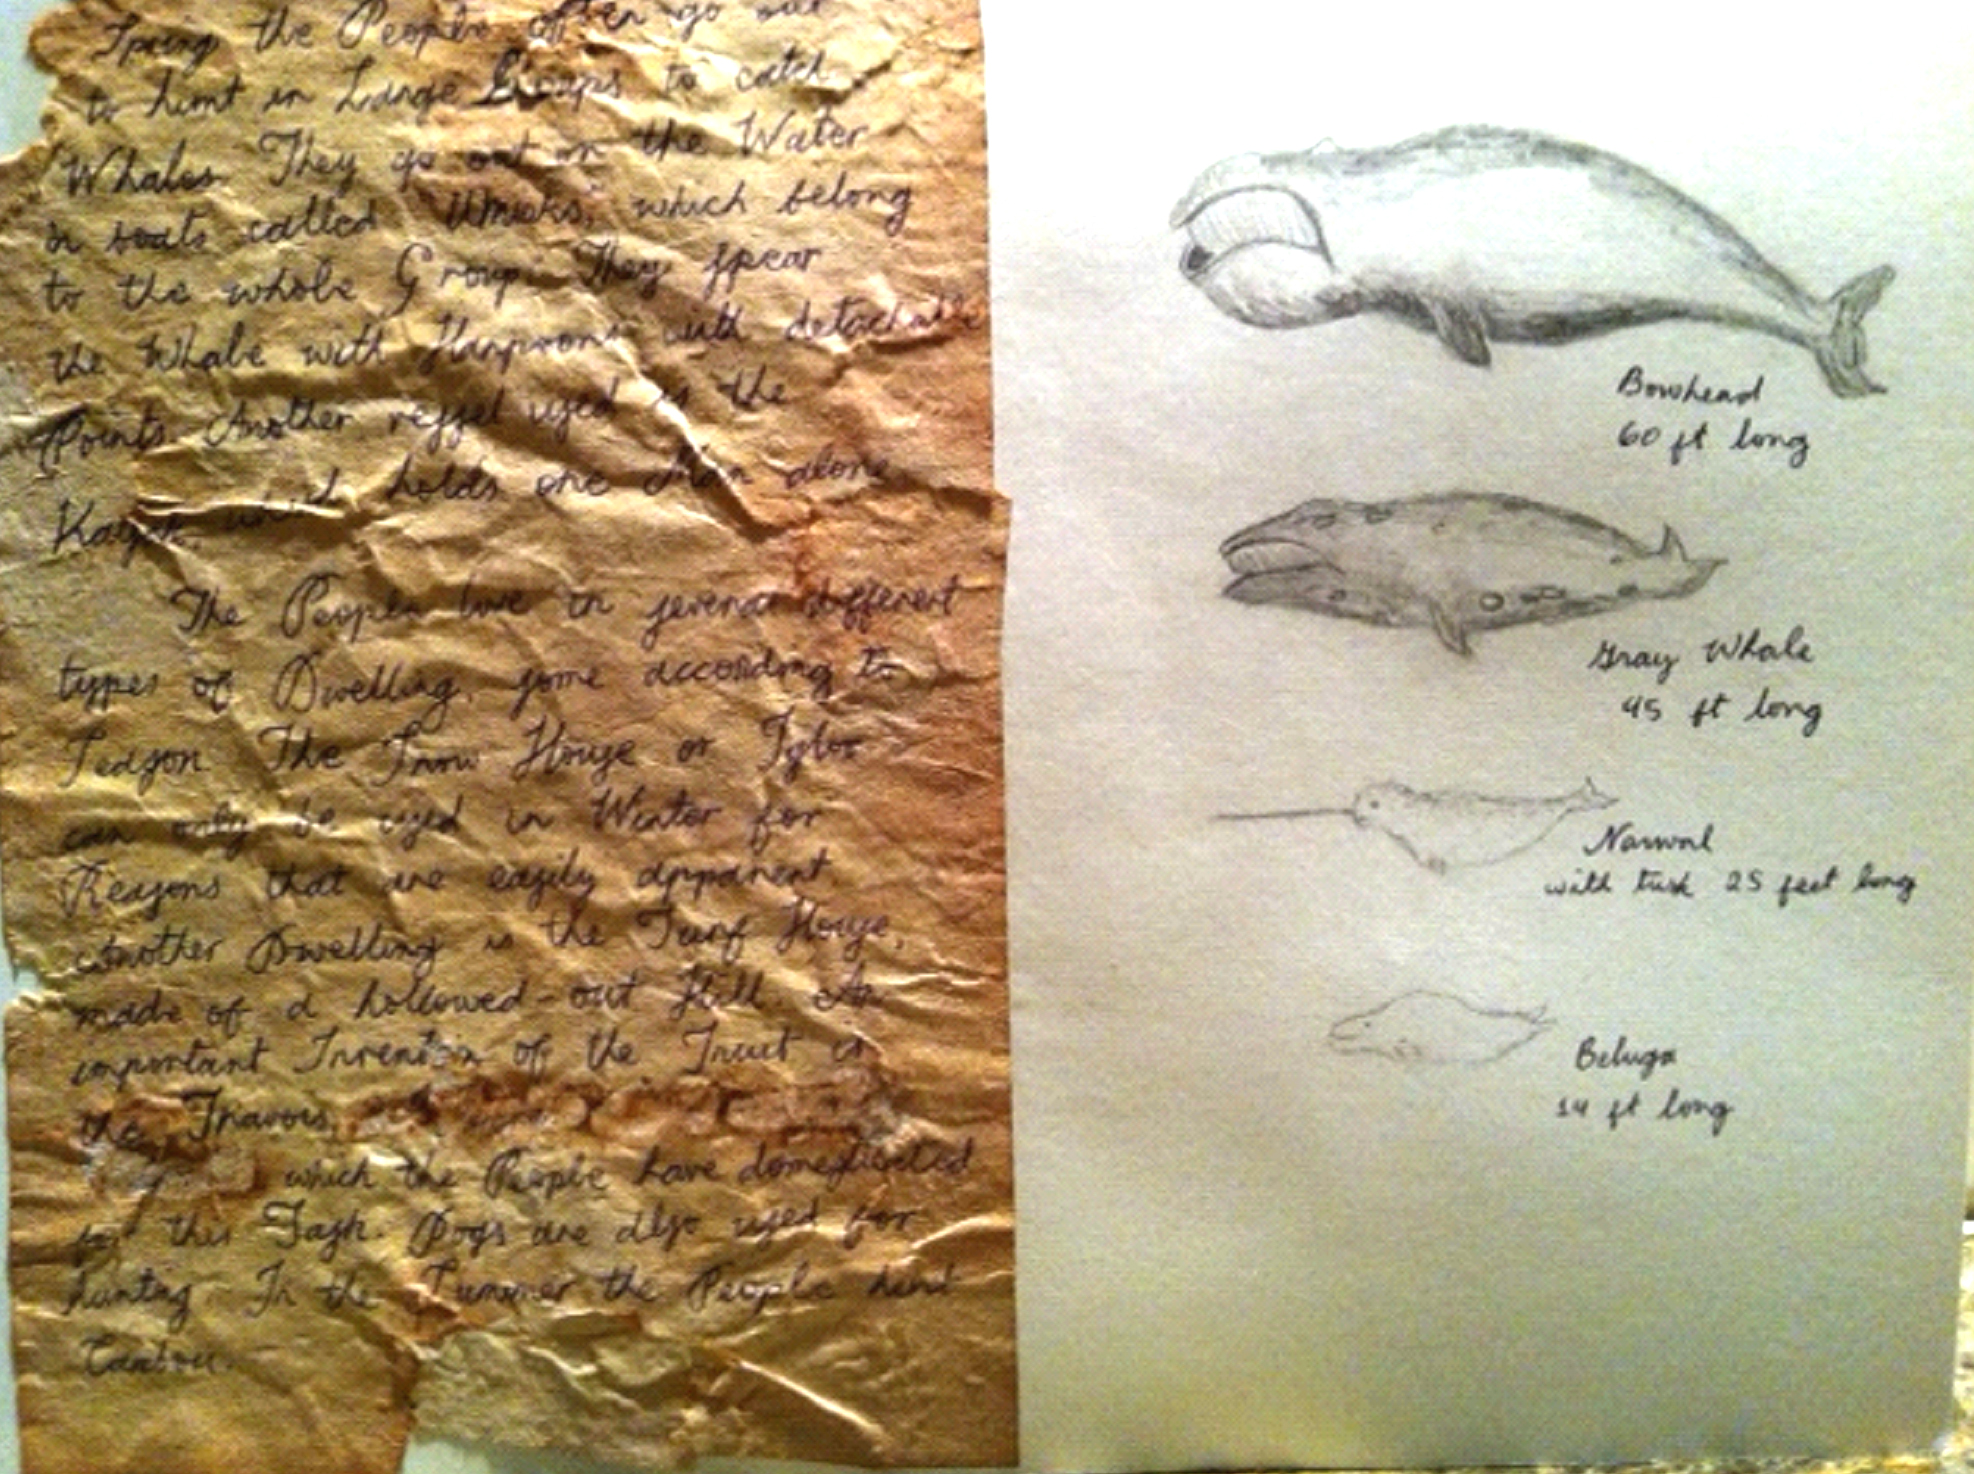 Spring the People often go out
to hunt in Large Groups to catch
Whales. They go out on the Water
in boats called "Umiaks," which belong
to the whole Group. They ſpear
the Whale with Harpoons with detachable
Points. Another veſſel uſed is the
Kayak, which holds one Man alone.
The People live in ſeveral different
types of Dwelling, ſome according to
Seaſon. The Snow Houſe or Igloo
can only be uſed in Winter for
Reaſons that are eaſily apparent
Another Dwelling is the Turf Houſe,
made of a hollowed-out Hill. An
important Invention of the Inuit is
the Travois,
which the People have domeſticated
for this Taſk. Dogs are alſo uſed for
hunting. In the Summer the People hunt
Caribou.
Bowhead
60 ft long
Gray Whale
45 ft long
Narwal
with tusk 25 feet long
Beluga
14 ft long